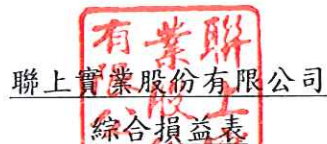 聯上實業股份有限公司
綜合損益表